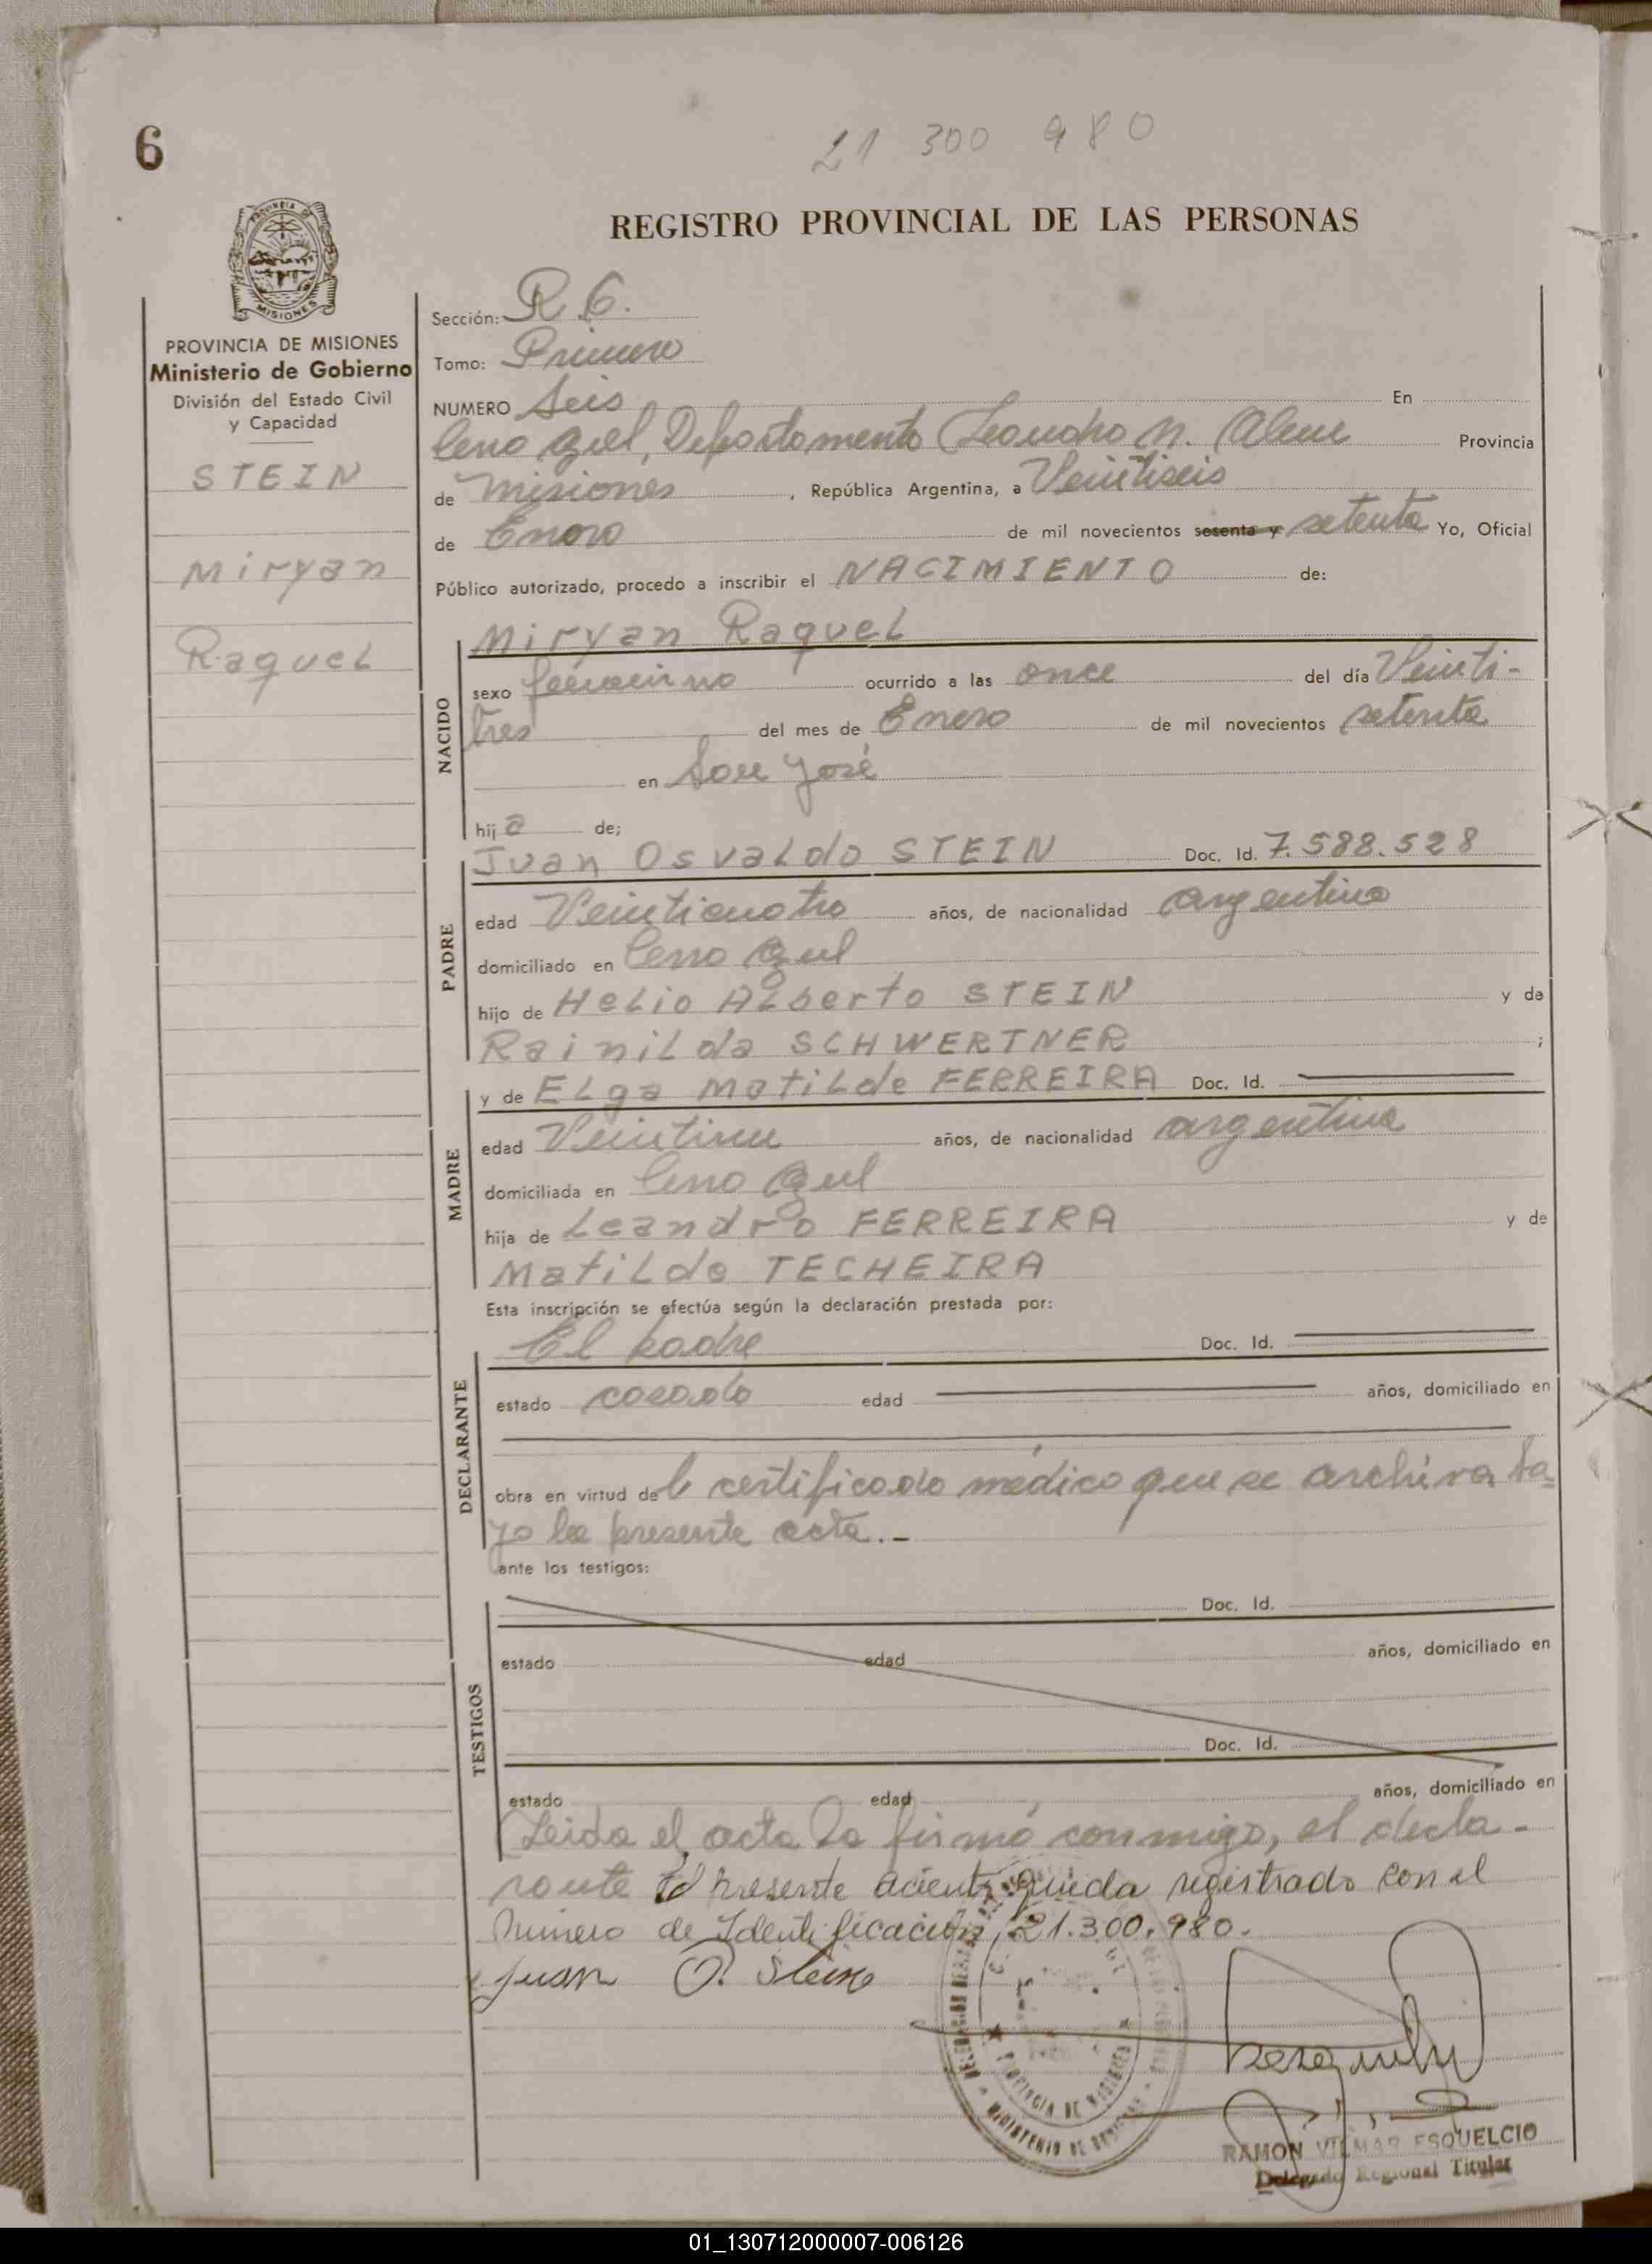 6
21 300 980
REGISTRO PROVINCIAL DE LAS PERSONAS
PROVINCIA DE
MISIONES
PROVINCIA DE MISIONES
Ministerio de Gobierno
División del Estado Civil
y Capacidad
STEIN
Miryan
Raquel
Sección: R 6.
Tomo: Primero
NUMERO Seis En
Cerro Azul, Departamento Leandro N. Alem Provincia
de Misiones, República Argentina, a Veintiseis
de Enero de mil novecientos sesenta y setenta Yo, Oficial
Público autorizado, procedo a inscribir el NACIMIENTO de:
NACIDO
Miryan Raquel
sexo femenino ocurrido a las once del día Veinti-
tres del mes de Enero de mil novecientos setenta
en San José
hija de;
PADRE
Juan Osvaldo STEIN Doc. Id. 7.588.528
edad Veinticuatro años, de nacionalidad argentina
domiciliado en Cerro Azul
hijo de Helio Alberto STEIN y de
Rainilda SCHWERTNER ;
MADRE
y de Elga Matilde FERREIRA Doc. Id.
edad Veintiun años, de nacionalidad argentina
domiciliada en Cerro Azul
hija de Leandro FERREIRA y de
Matilde TECHEIRA
Esta inscripción se efectúa según la declaración prestada por:
DECLARANTE
El padre Doc. Id.
estado casado edad años, domiciliado en
obra en virtud del certificado médico que se archiva ba
jo la presente acta.-
ante los testigos:
TESTIGOS
Doc. Id.
estado edad años, domiciliado en
Doc. Id.
estado edad años, domiciliado en
Leida el acta la firmó conmigo, el decla-
rante El presente aciento queda registrado con el
Número de Identificación 21.300.980.
Juan O. Stein
PROVINCIA DE MISIONES
MINISTERIO DE
RAMON VILMAR ESQUELCIO
Delegado Regional Titular
01_130712000007-006126